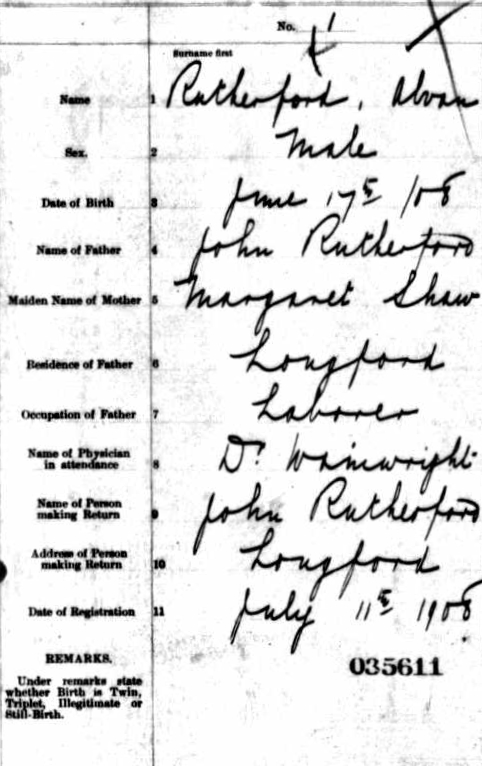 No. 1
Surname first
Name 1 Rutherford, Alvan
Sex. 2 Male
Date of Birth 3 June 17th /08
Name of Father 4 John Rutherford
Maiden Name of Mother 5 Margaret Shaw
Residence of Father 6 Longford
Occupation of Father 7 Laborer
Name of Physician
in attendance 8 Dr Wainwright
Name of Person
making Return 9 John Rutherford
Address of Person
making Return 10 Longford
Date of Registration 11 July 11th 1908
REMARKS.
035611
Under remarks state
whether Birth is Twin,
Triplet, Illegitimate or
Still-Birth.